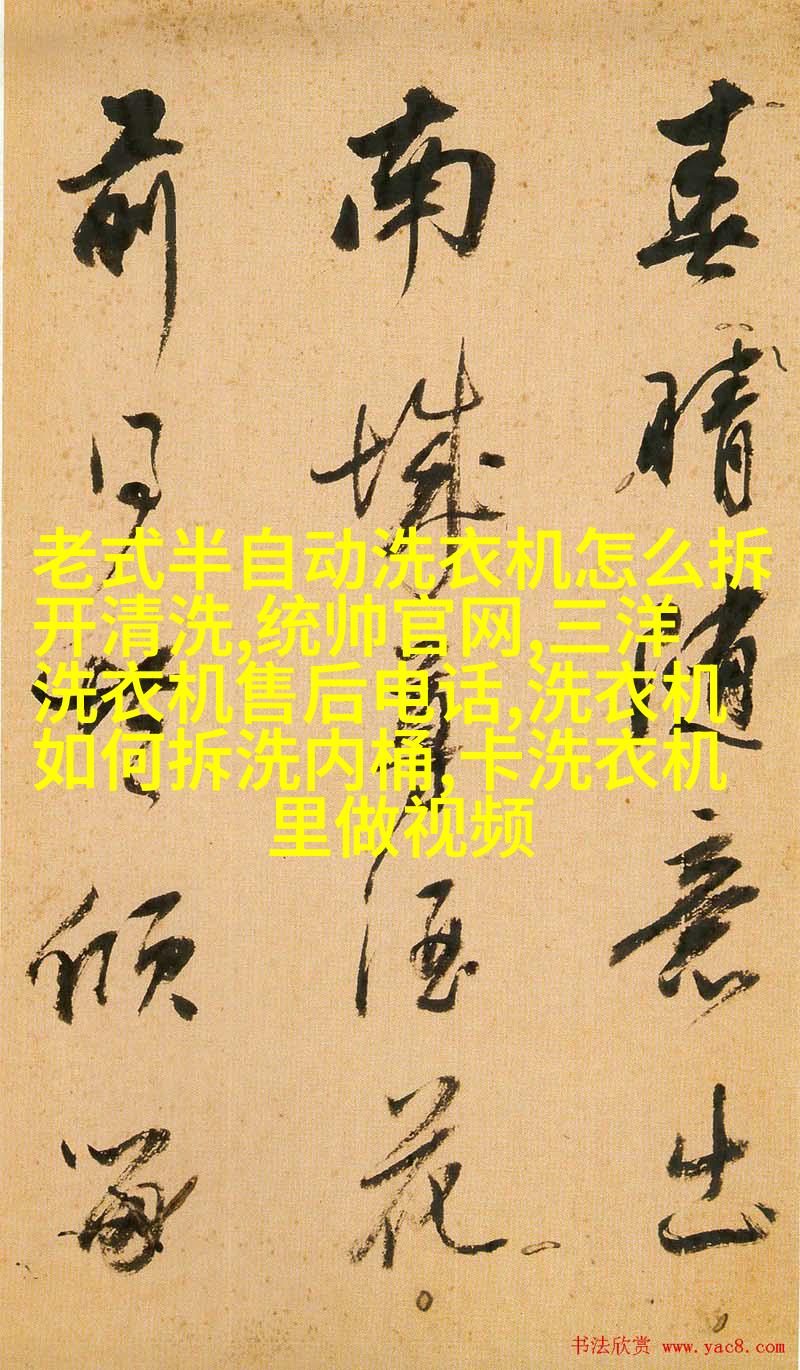 春晴随意出
南城 酒花
前 倾
老式半自动洗衣机怎么拆
开清洗,统帅官网,三洋
洗衣机售后电话,洗衣机
如何拆洗内桶,卡洗衣机
里做视频
书法欣赏 www.yac8.com